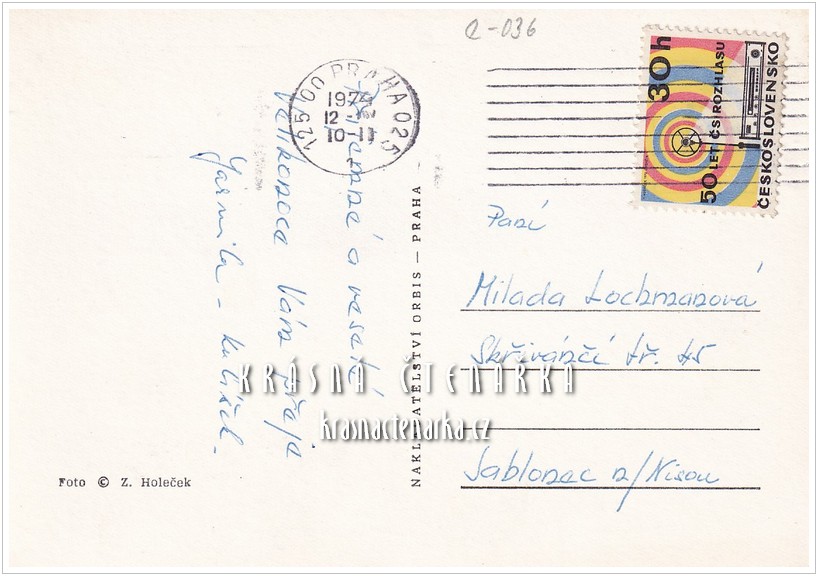 a-036
125 00 PRAHA 025
1974
12.-
10-11
30 h
50 LET ČS. ROZHLASU
ČESKOSLOVENSKO
Příjemné a veselé
Velikonoce Vám přeje
Jarmila -
NAKLADATELSTVÍ ORBIS — PRAHA
Paní
Milada Lochmanová
Skřivánčí tř. 45
Jablonec n/Nisou
KRÁSNÁ ČTENÁRKA
krasnactenarka.cz
Foto © Z. Holeček